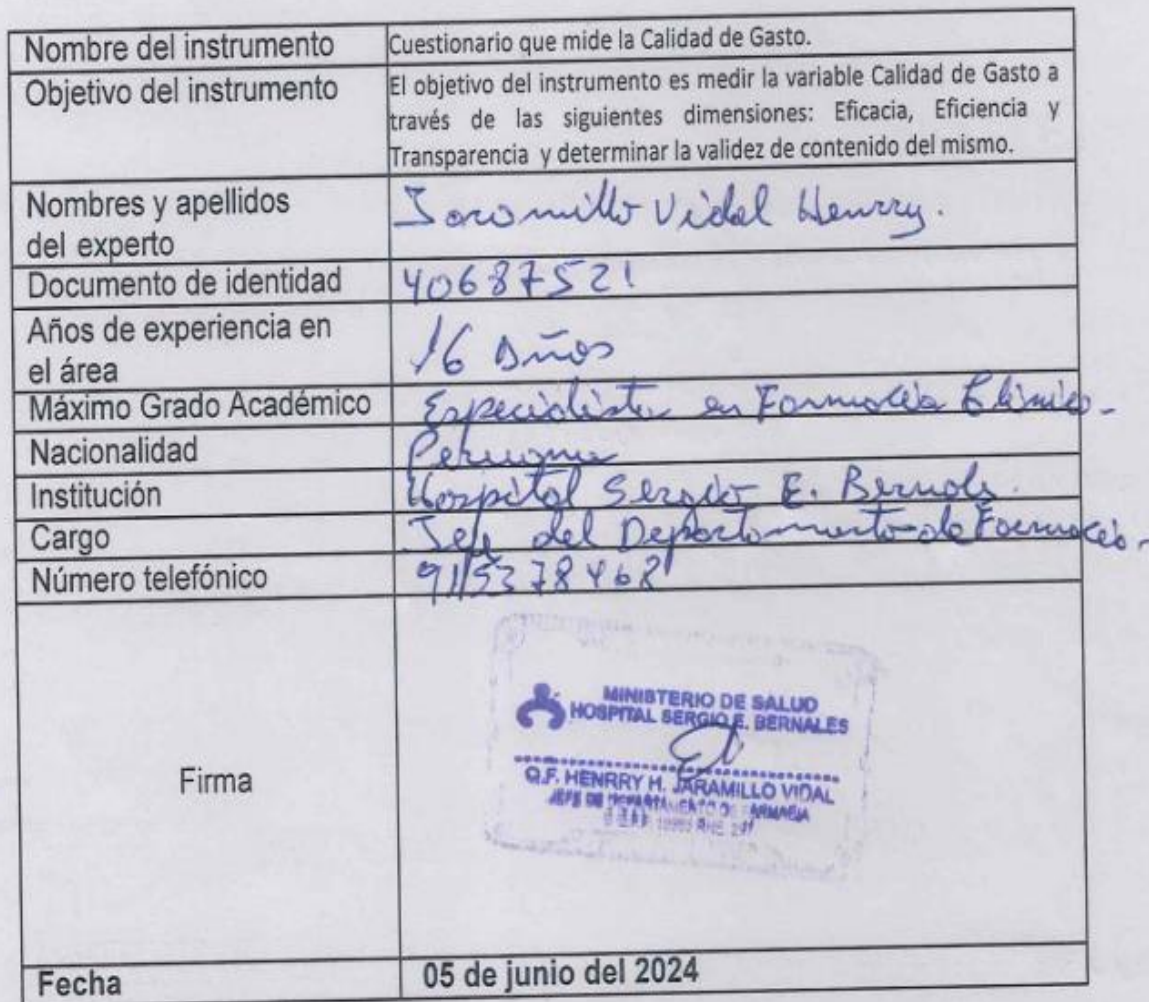 Nombre del instrumento Cuestionario que mide la Calidad de Gasto.
Objetivo del instrumento El objetivo del instrumento es medir la variable Calidad de Gasto a
través de las siguientes dimensiones: Eficacia, Eficiencia y
Transparencia y determinar la validez de contenido del mismo.
Nombres y apellidos
del experto
Jaramillo Vidal Henrry.
Documento de identidad 40687521
Años de experiencia en
el área
16 Años
Máximo Grado Académico Especialista en Farmacia Clínica.
Nacionalidad Peruana
Institución Hospital Sergio E. Bernales.
Cargo Jefe del Departamento de Farmacia.
Número telefónico 915378468
Firma
MINISTERIO DE SALUD
HOSPITAL SERGIO E. BERNALES
Q.F. HENRRY H. JARAMILLO VIDAL
JEFE DE DEPARTAMENTO DE FARMACIA
Fecha 05 de junio del 2024